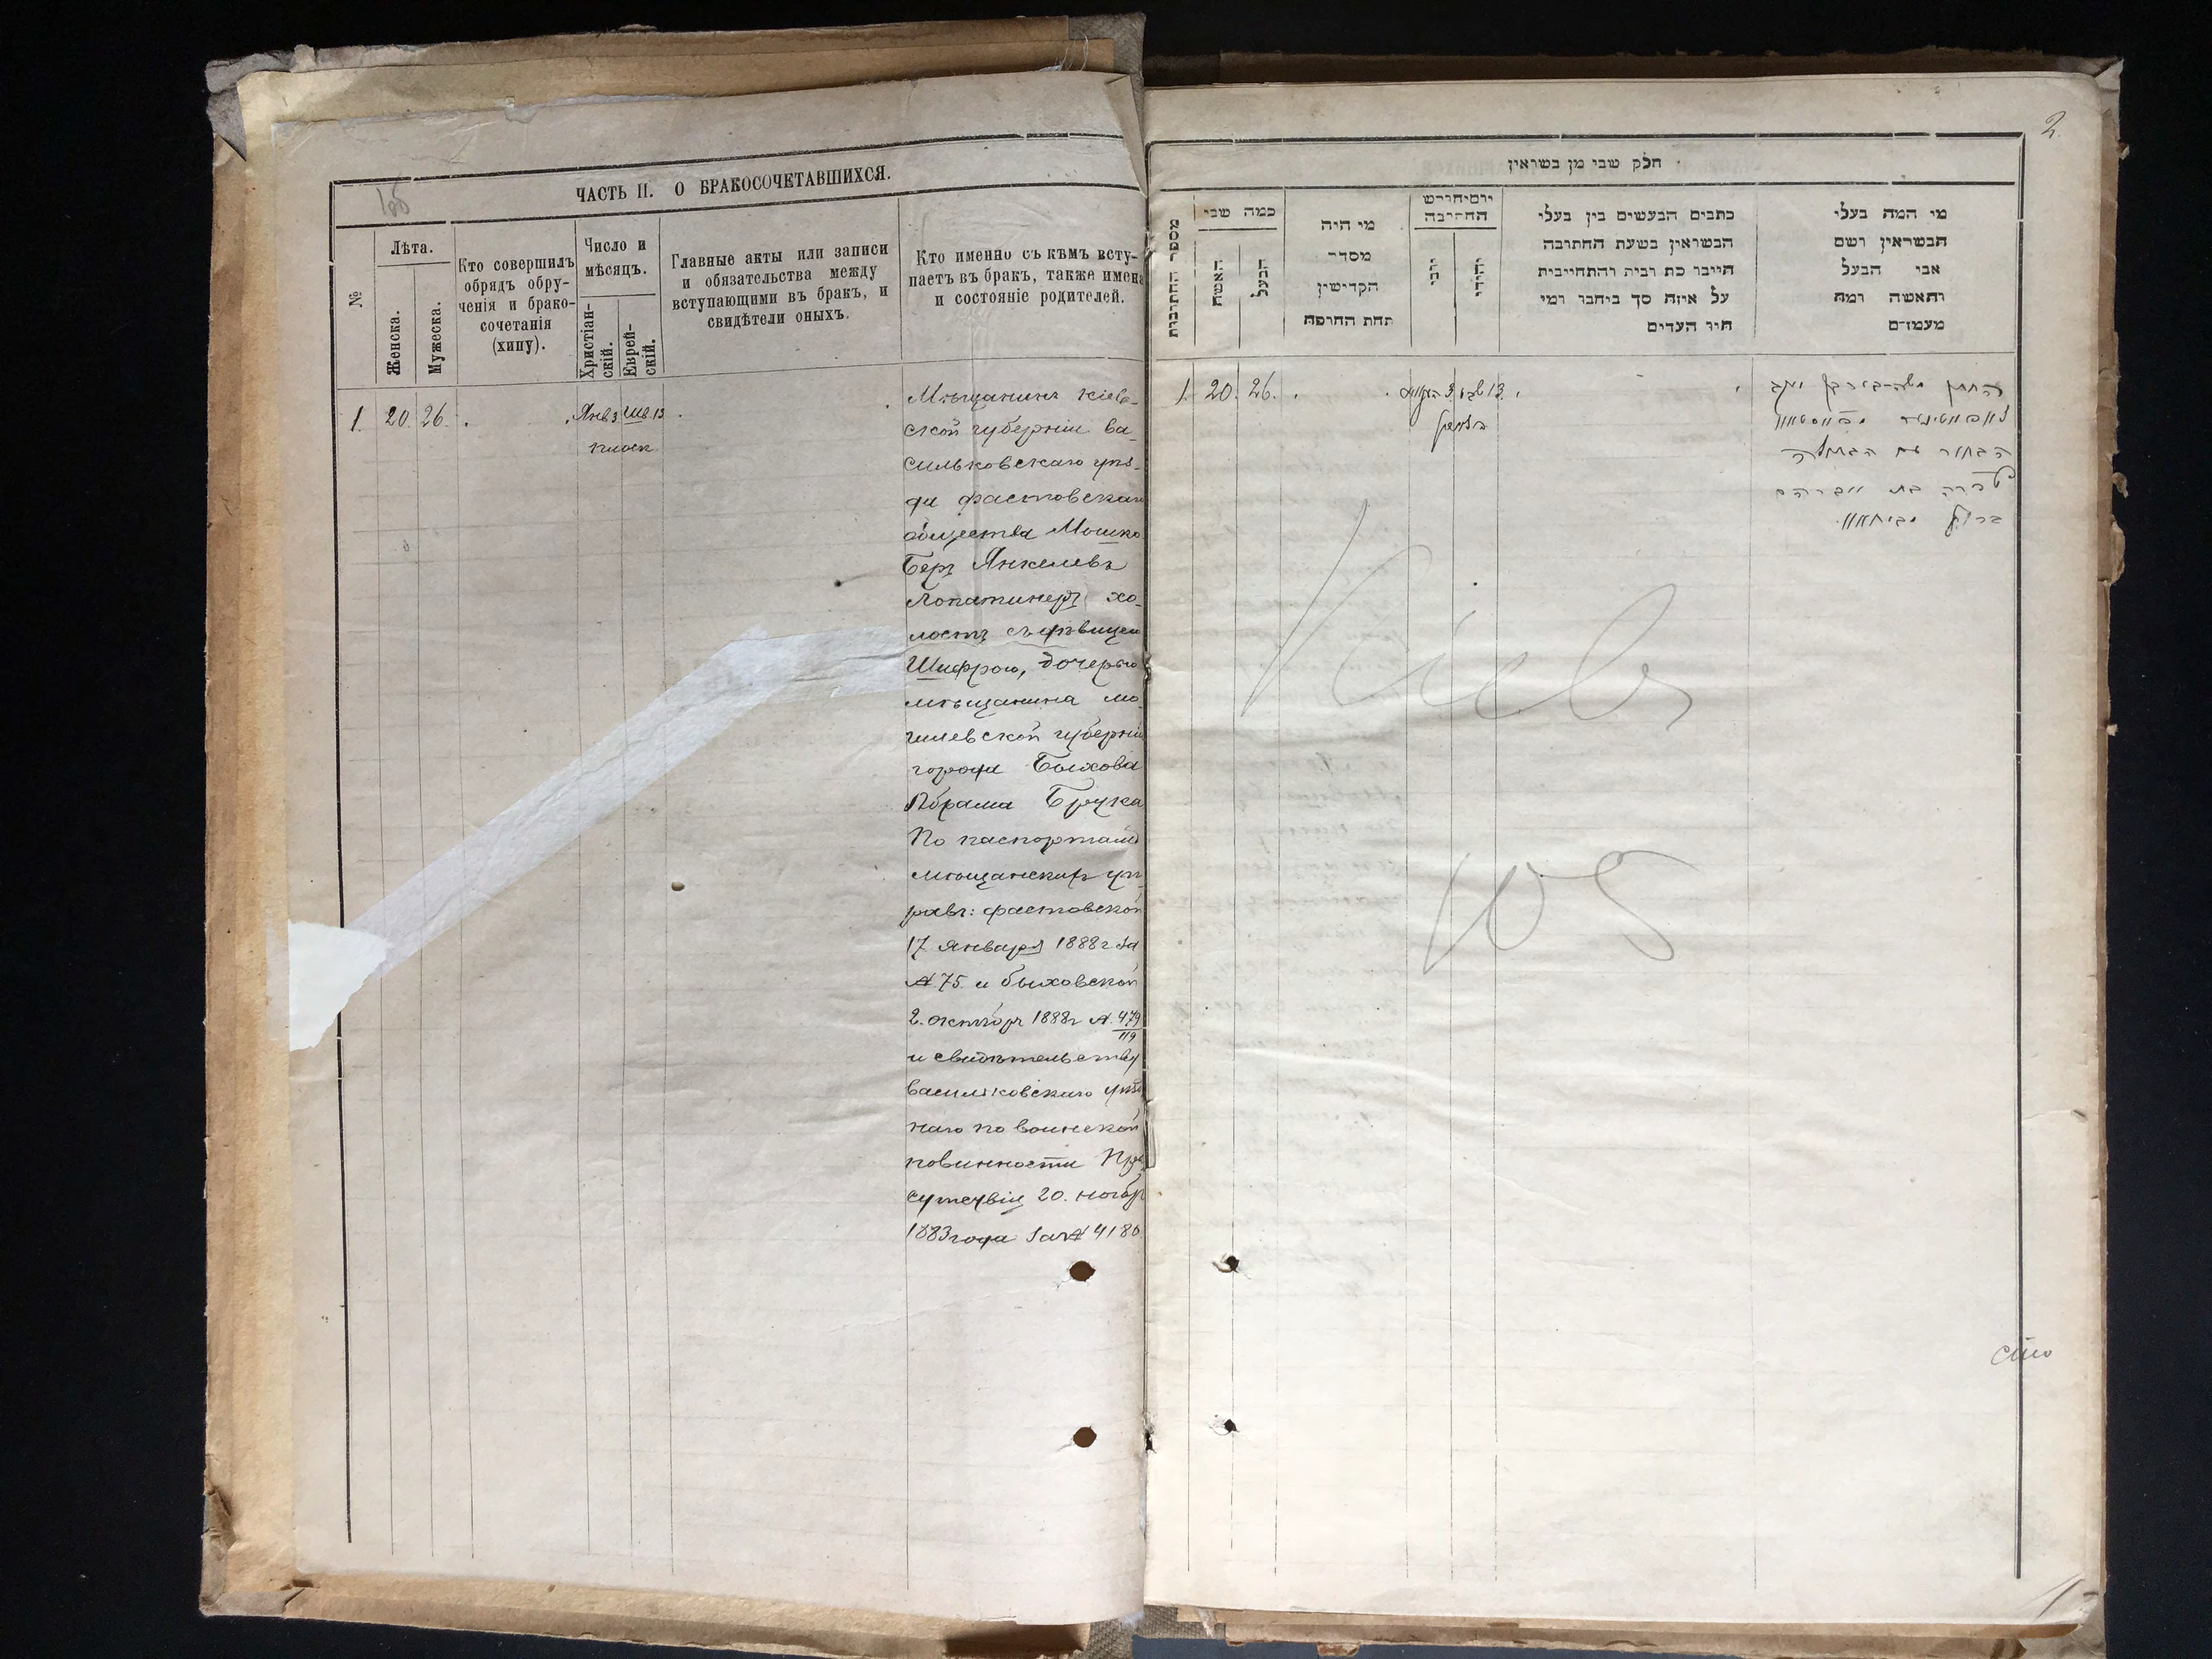 ЧАСТЬ II. О БРАКОСОЧЕТАВШИХСЯ.
№
Лѣта.
Женска.
Мужеска.
Кто совершилъ
обрядъ обру-
ченія и брако-
сочетанія
(хипу).
Число и
мѣсяцъ.
Христіан-
скій.
Еврей-
скій.
Главные акты или записи
и обязательства между
вступающими въ брак, и
свидѣтели оныхъ.
Кто именно съ кѣмъ всту-
паетъ въ бракъ, также имена
и состояніе родителей.
1. 20. 26. Янв 3 Шв. 13.
Мѣщанинъ Кіев-
ской губерніи ва-
сильковскаго уѣз-
да фастовскаго
общества Мошко
Беръ Янкелевъ
Лопатинеръ хо-
лостъ съ дѣвицею
Шифрою, дочерью
мѣщанина мо-
гилевской губерніи
города Быхова
Абрама Брука
По паспортамъ
мѣщанскихъ уп-
равъ: фастовской
17 января 1888 г за
№ 75 и быховской
2. октябр 1888 г № 479/119
и свидѣтельству
васильковскаго уѣзд
наго по воинской
повинности При
сутствія 20. ноябр
1883 года за № 4180
2.
חלק שני מן נשואין
מספר החתונות
כמה שני
האשה
הבעל
מי היה
מסדר
הקדושין
תחת החופה
יום וחודש
החתונה
יהודי
כתבים הנעשים בין בעלי
הנשואין בשעת החתונה
היינו כתובה והתחייבות
על איזה סך ביניהם ומי
היו העדים
מי המה בעלי
הנשואין ושם
אבי הבעל
והאשה ומה
מעמדם
1. 20. 26. 3 13
Кіевъ
105
сто